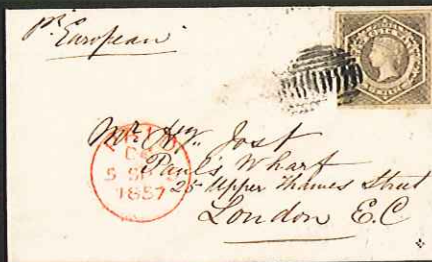 pr. European
Mr. Hy. Jost
Paul's Wharf
25 Upper Thames Street
London E.C
PAID
5 SP
1857